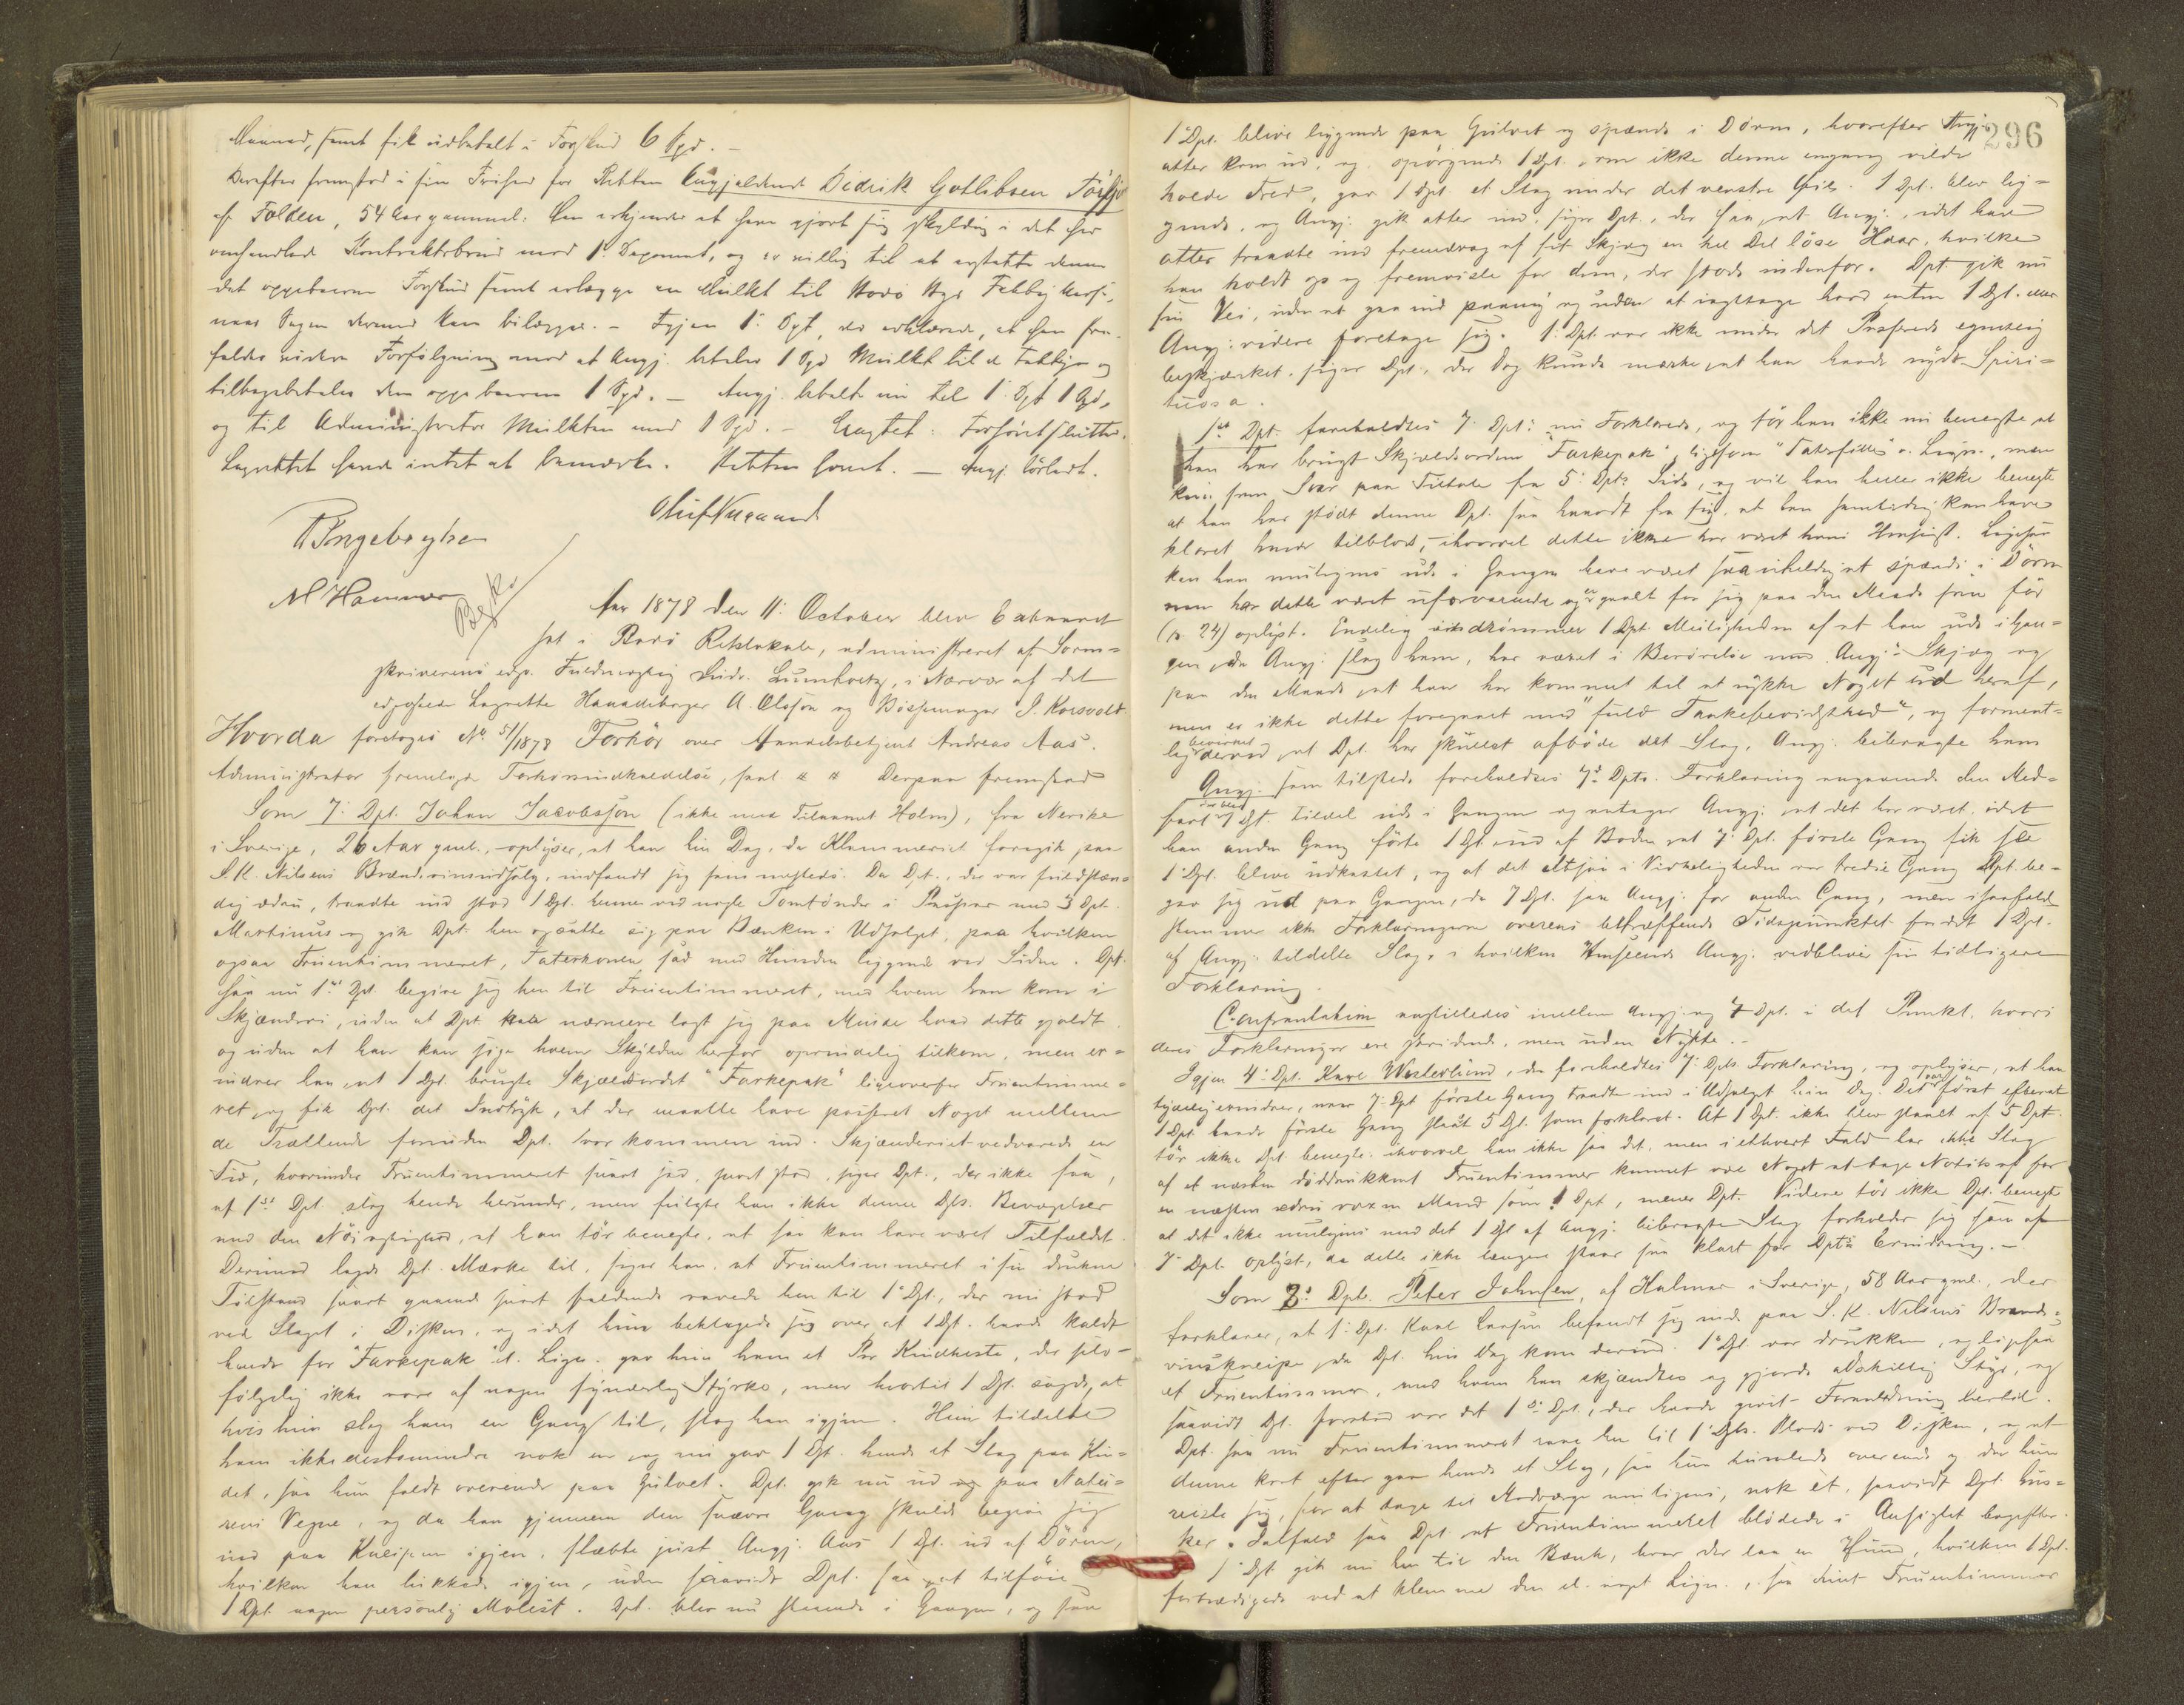 Maaned, samt fik udbetalt i Forskud 6 Spd. –
Derefter fremstod i sin Frihed for Retten Angjældende Didrik Gotlibsen
af Folden, 54 Aar gammel. Han erkjender at have gjort sig skyldig i det her
omhandlede Kontraktsbrud mod 1. Deponent, og er villig til at erstatte denne
det oppebaarne Forskud samt erlægge en Mulkt til Bodø Bys
naar Sagen dermed kan bilægges. – Igjen 1: Dpt, der erklærede, at han fra-
falder videre Forfølgning mod at Angj. betaler 1 Spd Mulkt til og
tilbagebetaler den oppebaarne 1 Spd. – Angj. betalte nu til 1: Dpt 1 Spd,
og til Administrator Mulkten med 1 Spd. – Eragtet: Forhøret sluttes.
Lagrettet havde intet at bemærke. Retten hævet. –
Ingebrigtsen
M Hammer
Aar 1878 den 11: October blev Extraret
sat i Bodø Retslokale, administreret af Soren-
skriverens edsv. Fuldmægtig Lumholtz, i Nærvær af det
edfæstede Lagrette Haandværker A. Olsson og Bøssemager I. Korsvold.
Hvorda foretoges No 51/1878 Forhør over Handelsbetjent Andreas Aas.
Administrator fremlagde Forhørsindkaldelse, saal. " " Derpaa fremstod
Som 7: Dpt. Johan Jacobsson (ikke med Tilnavnet Holm), fra Nerike
i Sverige, 26 Aar gml., oplyser, at han hin Dag, da Klammeriet foregik paa
S. K. Nilsens Brændevinsudsalg, indfandt sig sammesteds. Da Dpt., der var fuldstæn-
dig ædru, traadte ind stod 1 Dpt. henne ved nogle Tomtønder i Passiar med 3 Dpt.
Martinus og gik Dpt. hen og satte sig paa Bænken i Udsalget, paa hvilken
ogsaa Fruentimmeret, Taterkonen sad med Hunden liggende ved Siden. Dpt.
saa nu 1ste Dpt. begive sig hen til Fruentimmeret, med hvem han kom i
Skjænderi, uden at Dpt. nærmere lagt sig paa Minde hvad dette gjaldt
og uden at han kan sige hvem Skylden herfor oprindelig tilkom, men er-
indrer han, at 1 Dpt. brugte Skjældsordet "Farkepak" ligeoverfor Fruentimme-
ret, og fik Dpt. det Indtryk, at der maatte have passeret Noget mellem
de Trættende forinden Dpt. var kommen ind. Skjænderiet vedvarede en
Tid, hvorunder Fruentimmeret snart sad, snart stod, siger Dpt., der ikke saa,
at 1ste Dpt. slog hende herunder, men fulgte han ikke denne Dpts. Bevægelser
med den Nøiagtighed, at han tør benegte, at saa kan have været Tilfældet.
Derimod lagde Dpt. Mærke til, siger han, at Fruentimmeret i sin drukne
Tilstand snart gaaende snart faldende ravede hen til 1 Dpt., der nu stod
ved Slaget i Disken, og idet hun beklagede sig over at 1 Dpt. havde kaldt
hende for "Farkepak" el. Lign. gav hun ham et Par Kindheste, der selv-
følgelig ikke vare af nogen synderlig Styrke, men hvortil 1 Dpt. sagde, at
hvis hun slog ham en Gang til, slog han igjen. Hun tildelte
ham ikkedestomindre nok en, og nu gav 1 Dpt. hende et Slag paa Kin-
det, saa hun faldt overende paa Gulvet. Dpt. gik nu ud paa Natu-
rens Vegne, og da han gjennem den snævre Gang skulde begive sig
ind paa Kneipen igjen, slæbte just Angj. Aas 1 Dpt. ud af Døren,
hvilken han lukkede igjen, uden saavidt Dpt. saa, at tilføie
1 Dpt. nogen personlig Molest. Dpt. blev nu staaende i Gangen, og saa
296
1 Dpt. blive liggende paa Gulvet og spænde i Døren, hvorefter Angj.
atter kom ud, og spørgende 1 Dpt., om ikke denne engang vilde
holde Fred, gav 1 Dpt. et Slag under det venstre Øie. 1 Dpt. blev lig-
gende, og Angj. gik atter ind, siger Dpt., der saa, at Angj., idet han
atter traadte ind fremdrog af sit Skjæg en hel Del løse Haar, hvilke
han holdt op og fremviste for dem, der stode indenfor. Dpt. gik nu
sin Vei, uden at gaa ind paany og uden at iagttage hvad enten 1 Dpt. eller
Angj. videre foretoge sig. 1: Dpt. var ikke under det Passerede egentlig
beskjænket, siger Dpt., der dog kunde mærke, at han havde nydt Spiri-
tuosa.
1ste Dpt. foreholdtes 7 Dpts: nu Forklarede, og tør han ikke nu benegte at
han har brugt Skjældsordene "Farkepak", ligesom "Taterfille" o. Lign., men
kun som Svar paa Tiltale fra 5: Dpts Side, og vil han heller ikke benegte
at han har stødt denne Dpt. saa haardt fra sig, at han samtidig kan have
kloret hende tilblods, ihvorvel dette ikke har været hans Hensigt. Ligesaa
kan han muligens ude i Gangen have været saa uheldig at spænde i Døren
men har dette været uforvarende og er gaaet for sig paa den Maade som før
(p. 24) oplyst. Endelig indrømmer 1 Dpt. Muligheden af at han ude i Gan-
gen, da Angj. slog ham, har været i Berørelse med Angj:s Skjæg og
paa den Maade, at han har kommet til at rykke Noget ud heraf,
men er ikke dette foregaaet med "fuld Tankebevidsthed", og forment-
lig bevirket derved, at Dpt. har skullet afbøde det Slag, Angj. bibragte ham
Angj. som tilstede foreholdtes 7de Dpts. Forklaring angaaende den Med-
fart der blev 1 Dpt. tildel ude i Gangen og antager Angj. at det har været, idet
han anden Gang førte 1 Dpt. ud af Boden, at 7. Dpt. første Gang fik se
1 Dpt. blive udkastet, og at det altsaa i Virkeligheden var tredie Gang Dpt. be-
gav sig ud paa Gangen, da 7 Dpt. saa Angj. for anden Gang, men isaafald
stemmer ikke Forklaringerne overens betræffende Tidspunktet for det 1 Dpt.
af Angj. tildelte Slag, i hvilken Henseende Angj. vedbliver sin tidligere
Forklaring.
Confrontation anstilledes mellem Angj. og 7 Dpt. i det Punkt, hvori
deres Forklaringer ere stridende, men uden Nytte. –
Igjen 4: Dpt. Karl Westerlund, der foreholdtes 7: Dpts. Forklaring, og oplyser, at han
tydelig erindrer, naar 7: Dpt første Gang traadte ind i Udsalget hin Dag. Det var først efterat
1 Dpt. havde første Gang slaaet 5 Dpt. som forklaret. At 1 Dpt. ikke blev slaaet af 5 Dpt.
tør ikke Dpt. benegte, ihvorvel han ikke saa det, men i ethvert Fald har ikke Slag
af et næsten døddrukkent Fruentimmer kunnet være Noget at tage Notits af for
en næsten ædru voxen Mand som 1 Dpt, mener Dpt. Videre tør ikke Dpt. benegte
at det ikke muligens med det 1 Dpt af Angj. bibragte Slag forholder sig som af
7 Dpt. oplyst, da dette ikke længere staar saa klart for Dpts Erindring. –
Som 8: Dpt. Peter Johnsen, af Kalmar i Sverige, 58 Aar gml., der
forklarer, at 1: Dpt. Karl Larsen befandt sig inde paa S. K. Nilsens Brænde-
vinskneipe, da Dpt. hin Dag kom derind. 1 Dpt. var drukken, og ligesaa
et Fruentimmer, med hvem han skjændtes og gjorde adskillig Støi, og
saavidt Dpt. forstod var det 1ste Dpt., der havde givet Foranledning hertil.
Dpt. saa nu Fruentimmeret rave hen til 1 Dpts. Plads ved Disken, og at
denne kort efter gav hende et Slag, saa hun tumlede overende og da hun
reiste sig, for at tage til Modværge muligens, nok et, saavidt Dpt. hus-
ker. Ialfald saa Dpt. at Fruentimmeret blødede i Ansigtet bagefter.
1 Dpt gik nu hen til den Bænk, hvor der laa en Hund, hvilken 1 Dpt.
fortrædigede ved at klemme den el. noget Lign., saa Fruentimmer